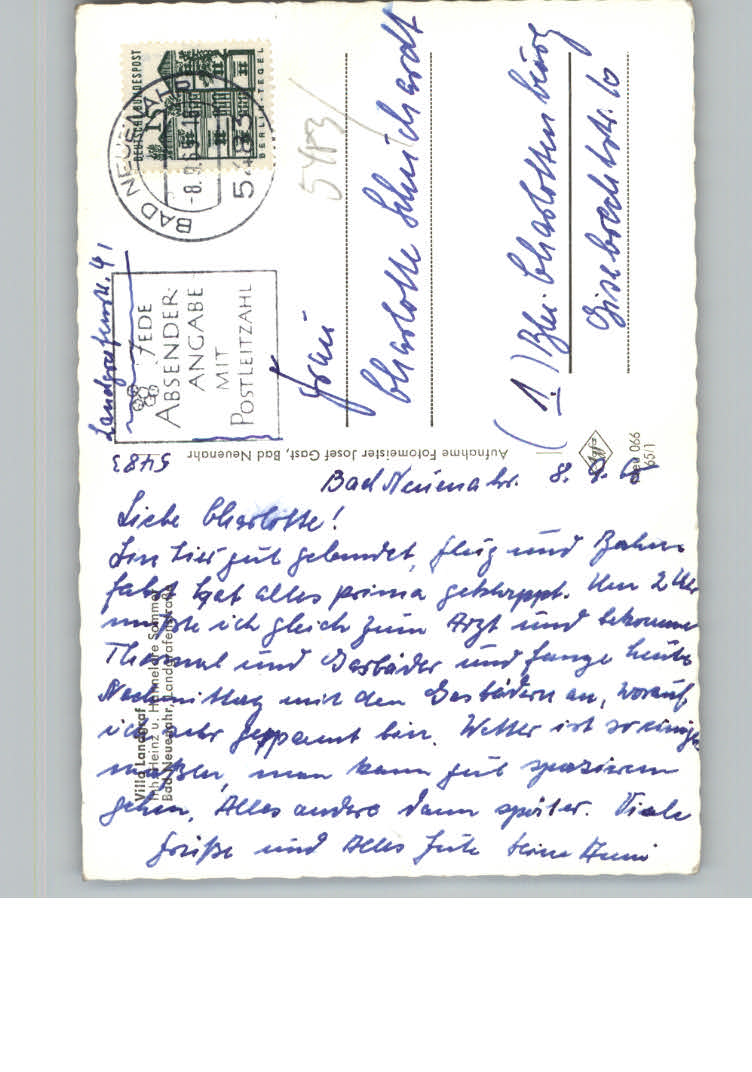 DEUTSCHE BUNDESPOST
BERLIN-TEGEL
BAD NEUENAHR
5483
JEDE
ABSENDER-
ANGABE
MIT
POSTLEITZAHL
Landgrafenstr. 41
5483
5483
Frau
Charlotte Schuchardt
(1) Bln. Charlottenburg
Giesebrechtstr. 10
Aufnahme Fotomeister Josef Gast, Bad Neuenahr
066
65/1
Villa Landgraf
Inh. Heinz u. Hannelore Sommer
Bad Neuenahr, Landgrafenstraße
Bad Neuenahr. 8. 9. 65
Liebe Charlotte!
Bin hier gut gelandet, Flug und Bahn-
fahrt hat alles prima geklappt. Um 2 Uhr
mußte ich gleich zum Arzt und bekomme
Thermal und Gasbäder und fange heute
Nachmittag mit den Gasbädern an, worauf
ich sehr gespannt bin. Wetter ist so einiger
maßen, man kann gut spazieren
gehen, Alles andere dann später. Viele
Grüße und Alles Gute Deine